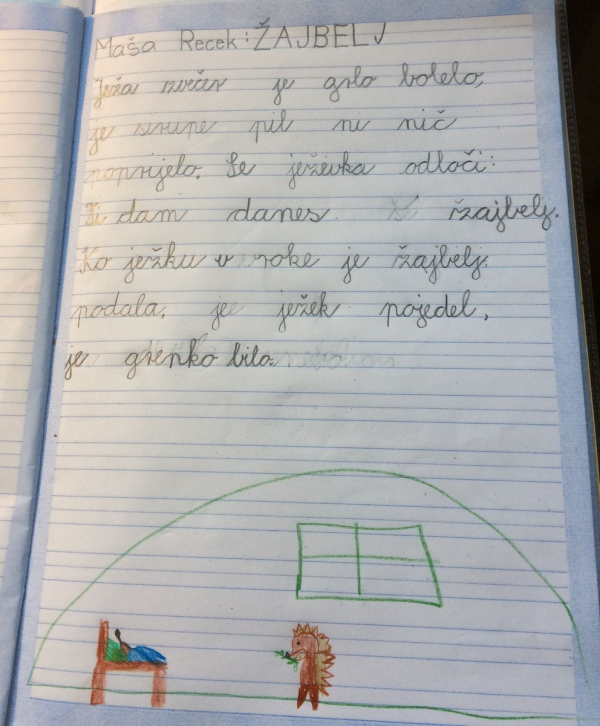 Maša Recek: ŽAJBELJ
Ježa zvečer je grlo bolelo,
je sirupe pil ni nič
poprijelo. Se ježevka odloči:
Ti dam danes žajbelj.
Ko ježku v roke je žajbelj
podala, je ježek pojedel,
je grenko bilo.